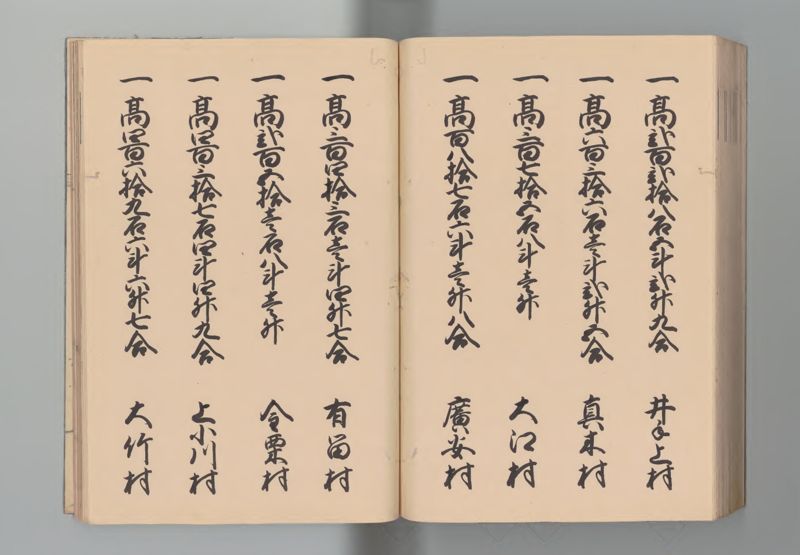 一高弐百弐拾八石五斗弐升九合 井手上村
一高六百三拾六石壱斗弐升五合 真木村
一高三百七拾五石八斗壱升 大江村
一高百八拾七石六斗壱升八合 廣安村
一高三百四拾三石壱斗四升七合 有留村
一高弐百五拾壱石八斗壱升 今栗村
一高四百三拾七石四斗四升九合 上小川村
一高四百六拾九石六斗六升七合 大竹村